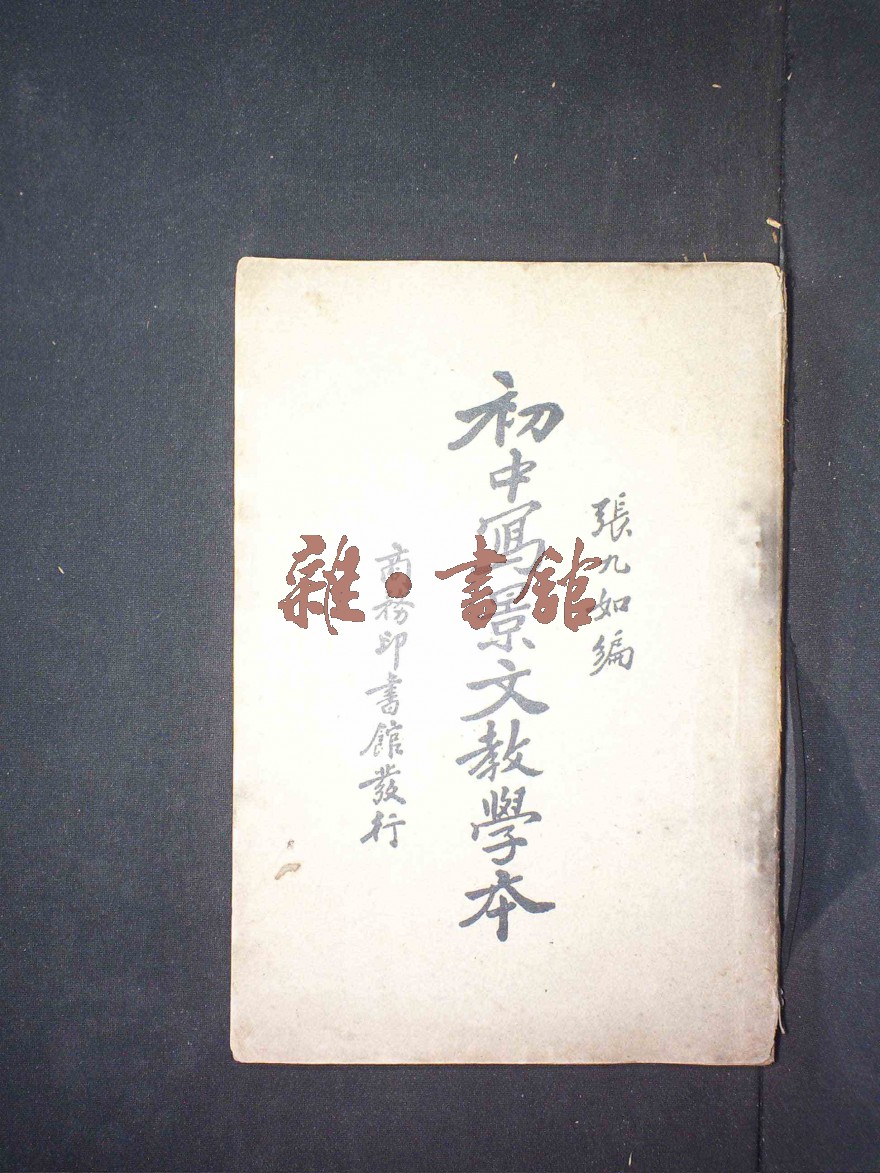 張九如編
初中寫景文教學本
商務印書館發行
雜·書館